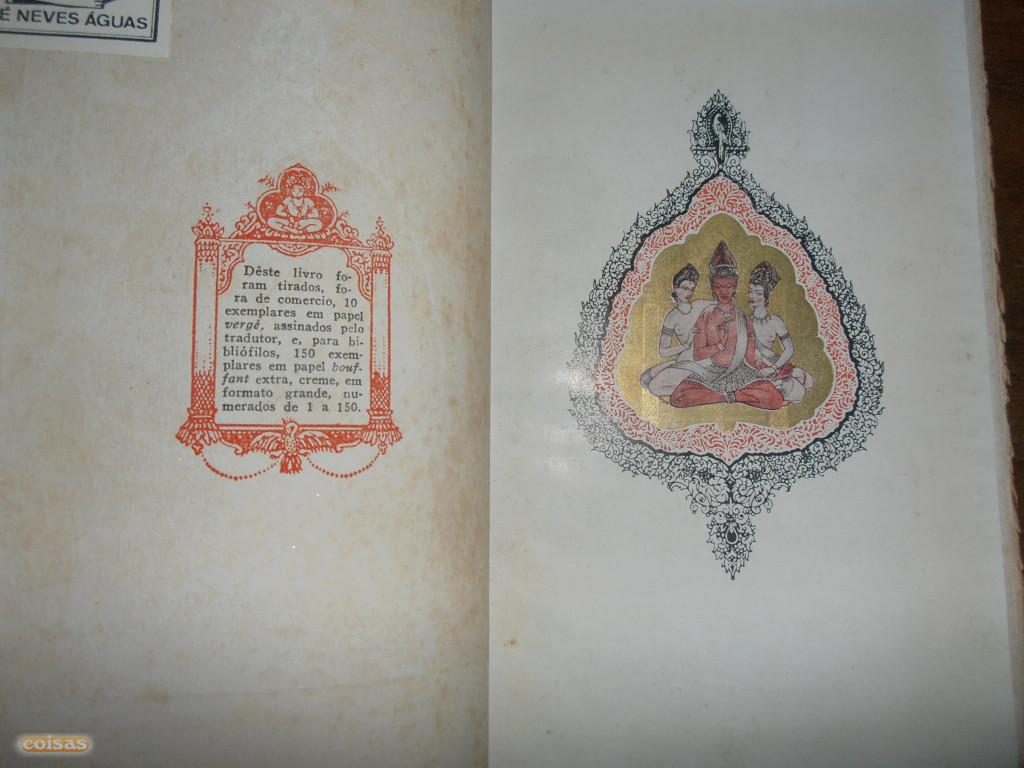 É NEVES ÁGUAS
Dêste livro fo-
ram tirados, fo-
ra de comercio, 10
exemplares em papel
vergé, assinados pelo
tradutor, e, para bi-
bliófilos, 150 exem-
plares em papel bouf-
fant extra, creme, em
formato grande, nu-
merados de 1 a 150.
coisas